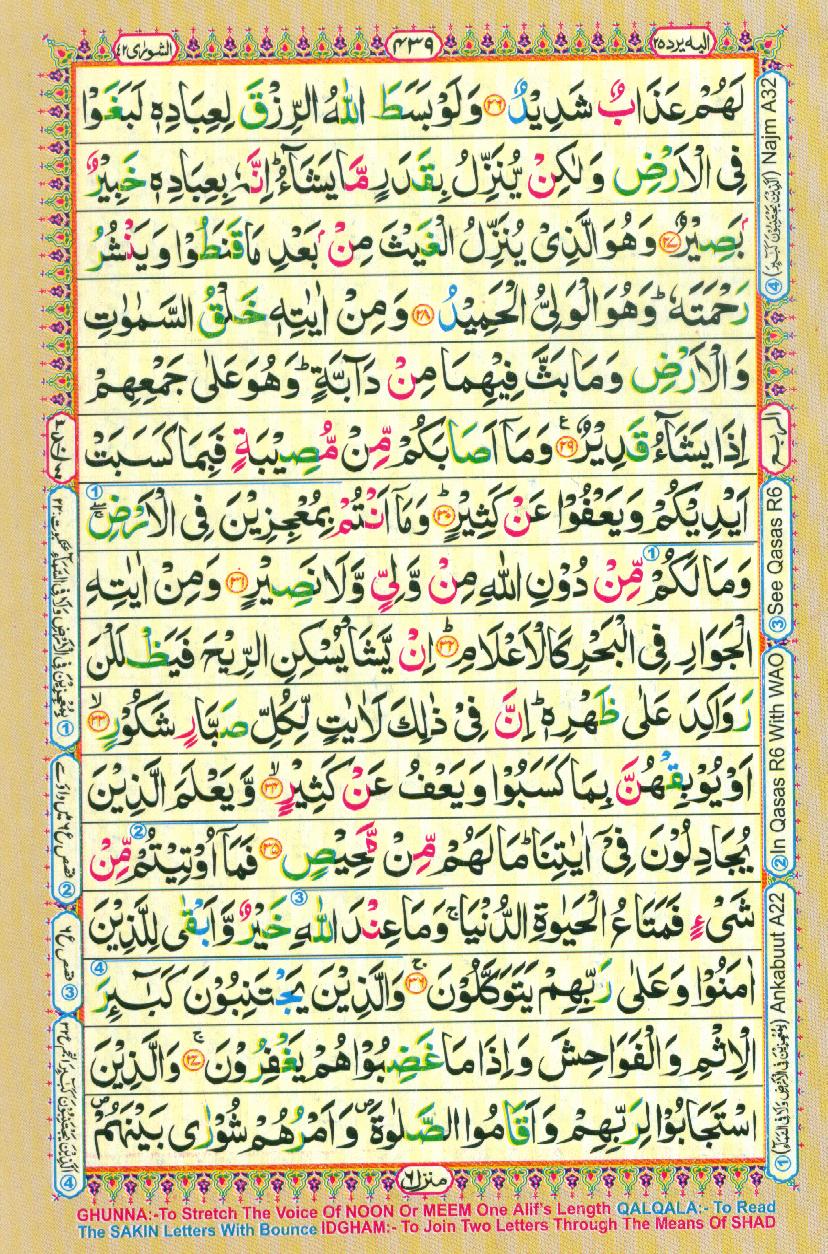 الیه یرد ۲۵
۴۳۹
الشورٰی ۴۲
لَهُمْ عَذَابٌ شَدِیْدٌ ۝۲۶ وَلَوْ بَسَطَ اللّٰهُ الرِّزْقَ لِعِبَادِهٖ لَبَغَوْا
فِی الْاَرْضِ وَلٰكِنْ یُّنَزِّلُ بِقَدَرٍ مَّا یَشَآءُ ؕ اِنَّهٗ بِعِبَادِهٖ خَبِیْرٌۢ
بَصِیْرٌ ۝۲۷ وَهُوَ الَّذِیْ یُنَزِّلُ الْغَیْثَ مِنْۢ بَعْدِ مَا قَنَطُوْا وَیَنْشُرُ
رَحْمَتَهٗ ؕ وَهُوَ الْوَلِیُّ الْحَمِیْدُ ۝۲۸ وَمِنْ اٰیٰتِهٖ خَلْقُ السَّمٰوٰتِ
وَالْاَرْضِ وَمَا بَثَّ فِیْهِمَا مِنْ دَآبَّةٍ ؕ وَهُوَ عَلٰی جَمْعِهِمْ
اِذَا یَشَآءُ قَدِیْرٌ ۝۲۹ وَمَاۤ اَصَابَكُمْ مِّنْ مُّصِیْبَةٍ فَبِمَا كَسَبَتْ
اَیْدِیْكُمْ وَیَعْفُوْا عَنْ كَثِیْرٍ ۝۳۰ وَمَاۤ اَنْتُمْ بِمُعْجِزِیْنَ فِی الْاَرْضِ ①
وَمَا لَكُمْ مِّنْ دُوْنِ اللّٰهِ مِنْ وَّلِیٍّ وَّلَا نَصِیْرٍ ۝۳۱ وَمِنْ اٰیٰتِهِ ①
الْجَوَارِ فِی الْبَحْرِ كَالْاَعْلَامِ ۝۳۲ اِنْ یَّشَاْ یُسْكِنِ الرِّیْحَ فَیَظْلَلْنَ
رَوَاكِدَ عَلٰی ظَهْرِهٖ ؕ اِنَّ فِیْ ذٰلِكَ لَاٰیٰتٍ لِّكُلِّ صَبَّارٍ شَكُوْرٍ ۝۳۳
اَوْ یُوْبِقْهُنَّ بِمَا كَسَبُوْا وَیَعْفُ عَنْ كَثِیْرٍ ۝۳۴ وَّیَعْلَمَ الَّذِیْنَ
یُجَادِلُوْنَ فِیْۤ اٰیٰتِنَا ؕ مَا لَهُمْ مِّنْ مَّحِیْصٍ ۝۳۵ فَمَاۤ اُوْتِیْتُمْ مِّنْ ②
شَیْءٍ فَمَتَاعُ الْحَیٰوةِ الدُّنْیَا ۚ وَمَا عِنْدَ اللّٰهِ خَیْرٌ وَّاَبْقٰی لِلَّذِیْنَ ③
اٰمَنُوْا وَعَلٰی رَبِّهِمْ یَتَوَكَّلُوْنَ ۝۳۶ وَالَّذِیْنَ یَجْتَنِبُوْنَ كَبٰٓىِٕرَ ④
الْاِثْمِ وَالْفَوَاحِشَ وَاِذَا مَا غَضِبُوْا هُمْ یَغْفِرُوْنَ ۝۳۷ وَالَّذِیْنَ
اسْتَجَابُوْا لِرَبِّهِمْ وَاَقَامُوا الصَّلٰوةَ ۪ وَاَمْرُهُمْ شُوْرٰی بَیْنَهُمْ ۪
④ (الَّذِیْنَ یَجْتَنِبُوْنَ كَبٰٓىِٕرَ) Najm A32
الربع
③ See Qasas R6
② In Qasas R6 With WAO
① (بِمُعْجِزِیْنَ فِی الْاَرْضِ وَلَا فِی السَّمَآءِ) Ankabuut A22
③ قصص ع ۶
منزل ۶
GHUNNA:-To Stretch The Voice Of NOON Or MEEM One Alif's Length QALQALA:- To Read
The SAKIN Letters With Bounce IDGHAM:- To Join Two Letters Through The Means Of SHAD